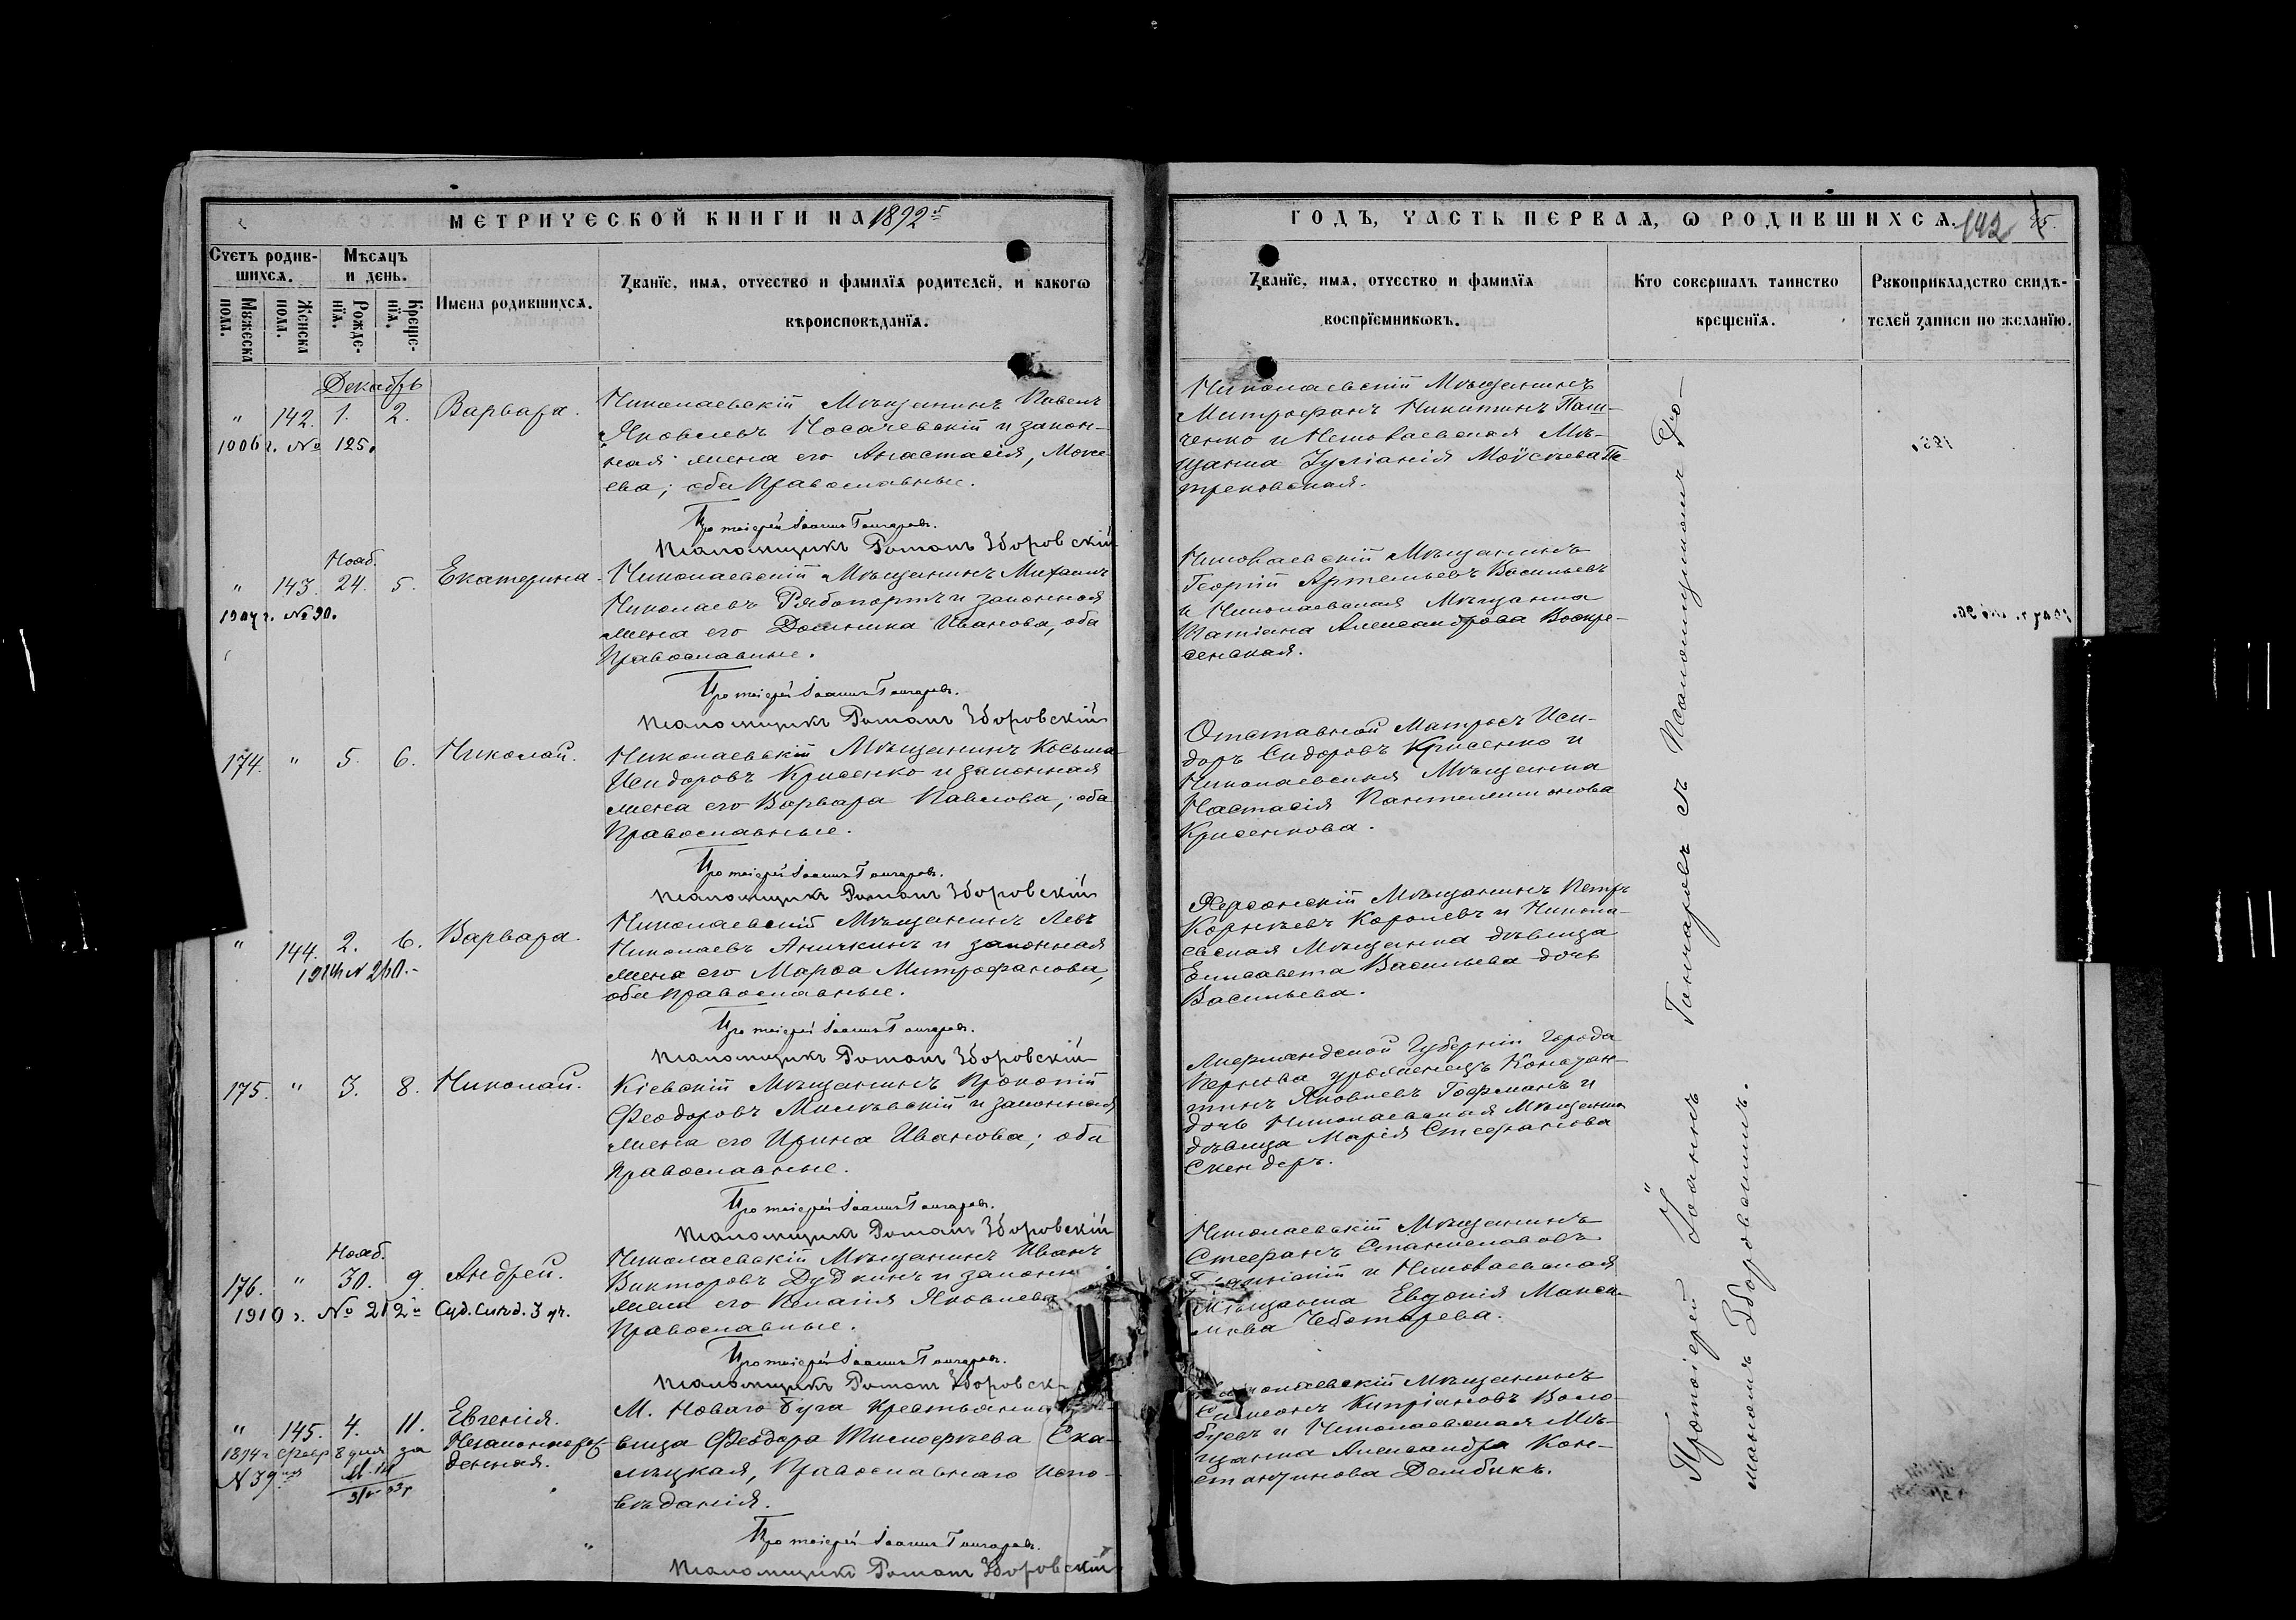 МЕТРИЧЕСКОЙ КНИГИ НА 1892й
ГОДЪ, ЧАСТЬ ПЕРВАЯ, Ѡ РОДИВШИХСЯ. 142
Счетъ родив-
шихся.
Мѣсяцъ
и день.
Мужеска
пола.
Женска
пола.
Рожде-
нїя.
Креще-
нїя.
Имена родившихся.
Званїе, имя, отчество и фамилїя родителей, и какогѡ
вѣроисповѣданїя.
Званїе, имя, отчество и фамилїя
воспрїемникѡвъ.
Кто совершалъ таинство
крещенїя.
Рукоприкладство свидѣ-
телей записи по желанїю.
Декабрь
" 142. 1. 2. Варвара.
1906 г. № 125.
Николаевскій Мѣщанинъ Павелъ
Яковлевъ Носачевскій и закон-
ная жена его Анастасія,
ева; оба Православные.
Протоіерей Іоаннъ Гончаровъ.
Псаломщикъ Романъ Зборовскій
Николаевскій Мѣщанинъ
Митрофанъ Никитинъ Паш-
ченко и Николаевская Мѣ-
щанка Іуліанія Моѵсѣева Пе-
трековская.
Нояб.
" 143. 24. 5. Екатерина.
1907 г. № 90.
Николаевскій Мѣщанинъ Михаилъ
Николаевъ Рябоноргъ и законная
жена его Домника Иванова, оба
Православные.
Протоіерей Іоаннъ Гончаровъ.
Псаломщикъ Романъ Зборовскій
Николаевскій Мѣщанинъ
Георгій Артемьевъ Васильевъ
и Николаевская Мѣщанка
Татіана Александрова Воскре-
сенская.
174. " 5. 6. Николай.
Николаевскій Мѣщанинъ Косьма
Исидоровъ Крисенко и законная
жена его Варвара Павлова; оба
Православные.
Протоіерей Іоаннъ Гончаровъ.
Псаломщикъ Романъ Зборовскій
Отставной Матросъ Иси-
доръ Сидоровъ Крисенко и
Николаевская Мѣщанка
Настасія Пантелеимонова
Крисенкова.
" 144. 2. 6. Варвара.
№ 260.-
Николаевскій Мѣщанинъ Левъ
Николаевъ Аничкинъ и законная
жена его Марѳа Митрофанова,
оба Православные.
Протоіерей Іоаннъ Гончаровъ.
Псаломщикъ Романъ Зборовскій
Херсонскій Мѣщанинъ Петръ
Корнѣевъ Королевъ и Никола-
евская Мѣщанка дѣвица
Елисавета Васильева дочь
Васильева.
175. " 3. 8. Николай.
Кіевскій Мѣщанинъ Прокопій
Феодоровъ Милѣвскій и законная
жена его Ирина Иванова; оба
Православные.
Протоіерей Іоаннъ Гончаровъ.
Псаломщикъ Романъ Зборовскій
Лифляндской Губерніи Города
Пернова уроженецъ Констан-
тинъ Яковлевъ Гофманъ и
дочь Николаевская Мѣщанка
дѣвица Марія Стефанова
Скендеръ.
Нояб.
176. " 30. 9. Андрей.
1910 г. № 212й Суд. Слѣд. 3 уч.
Николаевскій Мѣщанинъ Иванъ
Викторовъ Дудкинъ и законн
жена его Пелагія Яковлева
Православные.
Протоіерей Іоаннъ Гончаровъ.
Псаломщикъ Романъ Зборовск
Николаевскій Мѣщанинъ
Стефанъ Станиславовъ
и Николаевская
Мѣщанка Евдокія Макси-
мова Чеботарева.
" 145. 4. 11. Евгенія.
Незаконнорож-
денная.
1894 г Февр 8 дня за
N 39
М. Новаго Буга Крестьянка дѣ-
вица Феодора Тимоѳеева Ска-
лѣцкая, Православнаго испо-
вѣданія.
Протоіерей Іоаннъ Гончаровъ.
Псаломщикъ Романъ Зборовскій
Николаевскій Мѣщанинъ
Симеонъ Кипріановъ Воло-
буевъ и Николаевская Мѣ-
щанка Александра Кон-
стантинова Дембикъ.
Протоіерей Іоаннъ Гончаровъ съ Псаломщикомъ Ро-
маномъ Зборовскимъ.